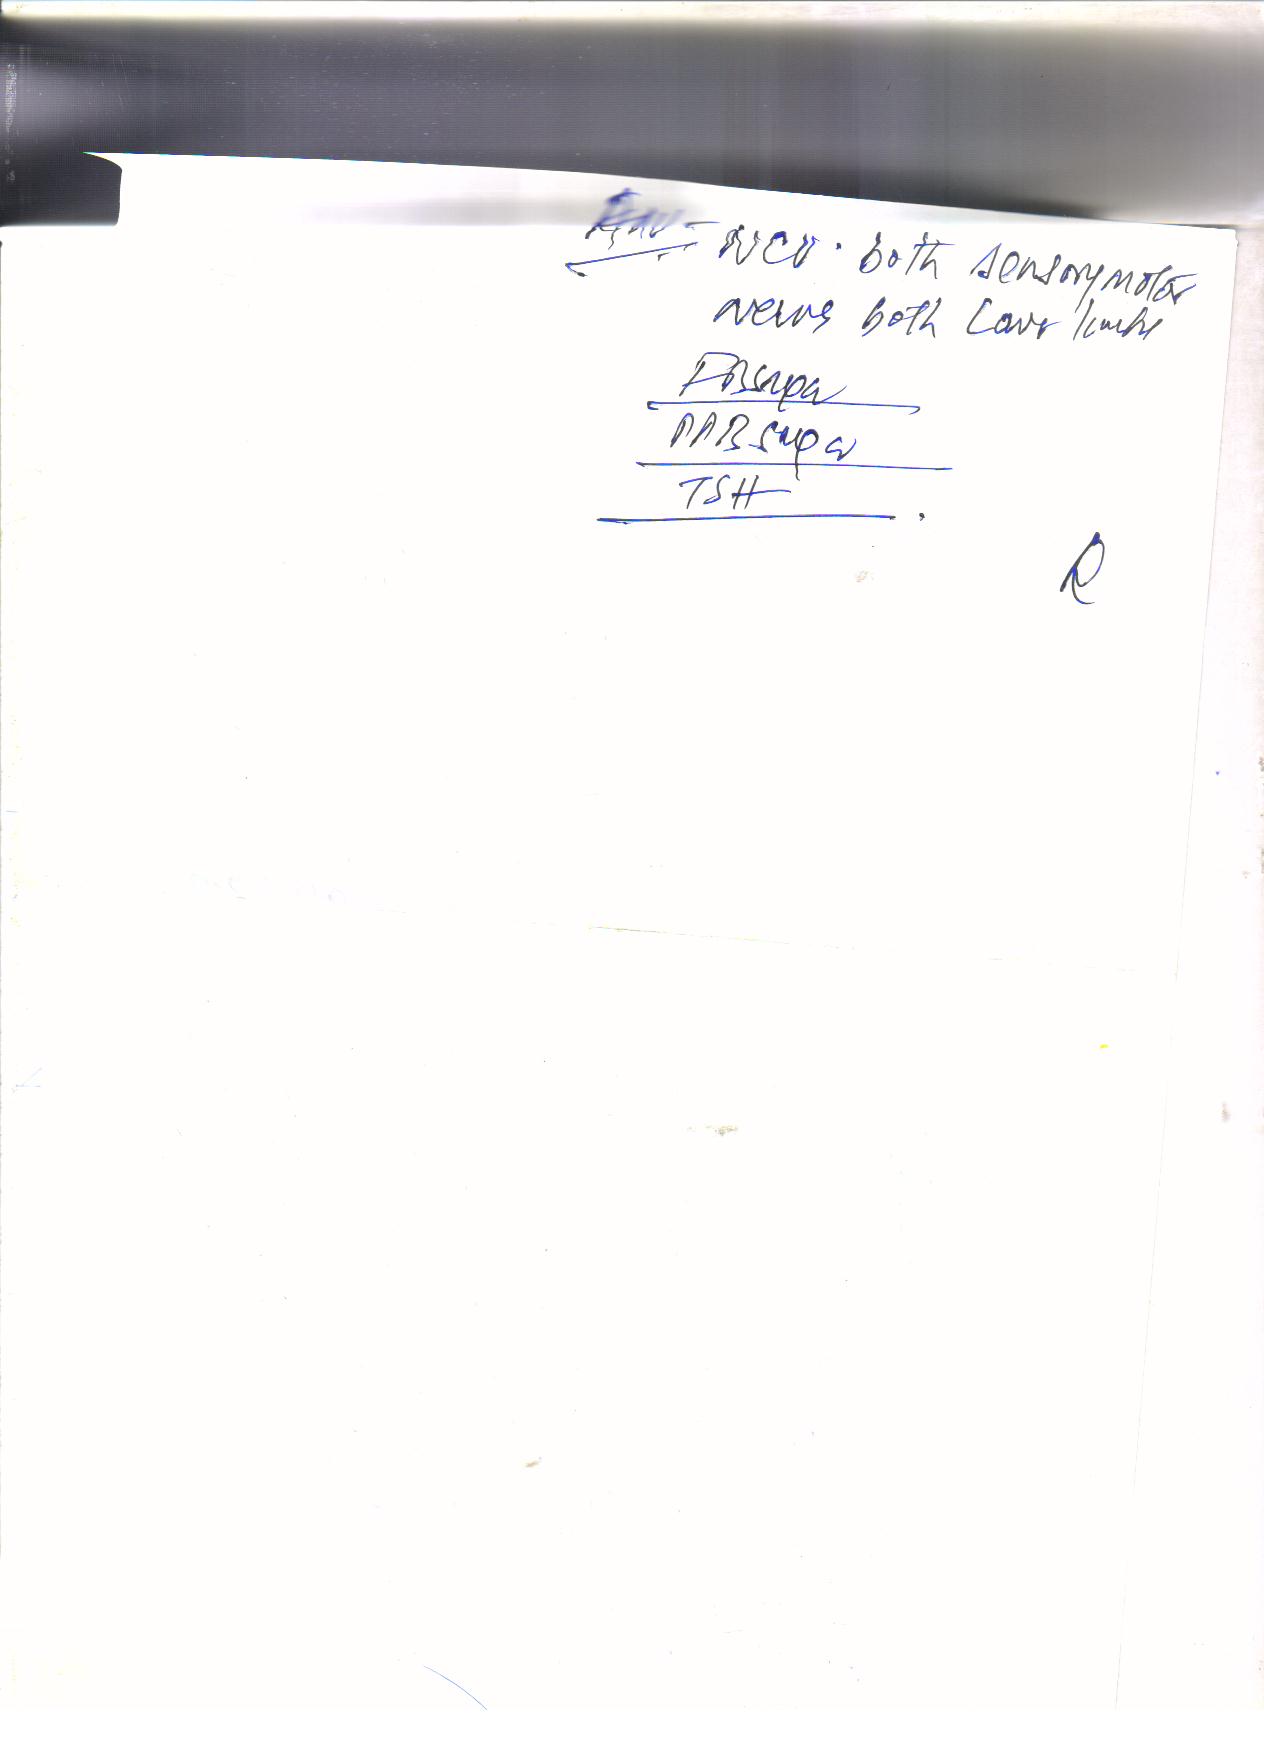 NCV. both sensory motor
nerves both Lower limbs
FBsugar
PPBsugar
TSH
R